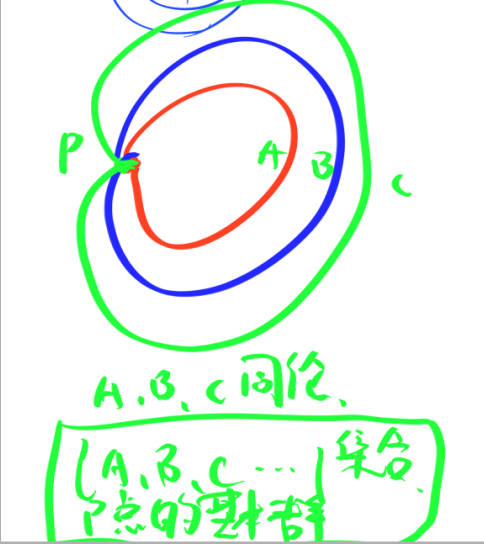 P
A
B
C
A、B、C同伦、
{A、B、C…} 集合
P点的基本群